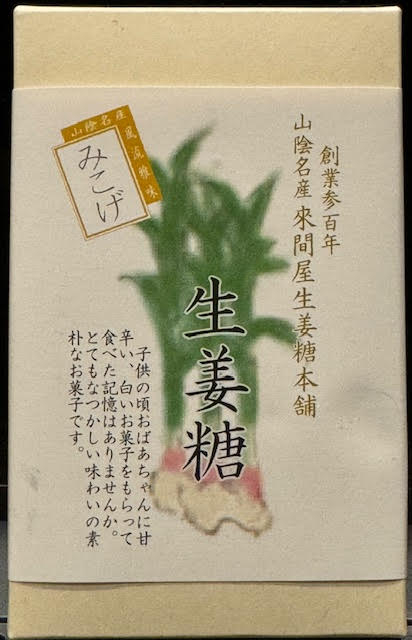 創業参百年
山陰名産 來間屋生姜糖本舗
山陰名産
風流雅味
みこげ
生姜糖
子供の頃おばあちゃんに甘
辛い、白いお菓子をもらって
食べた記憶はありませんか。
とてもなつかしい味わいの素
朴なお菓子です。